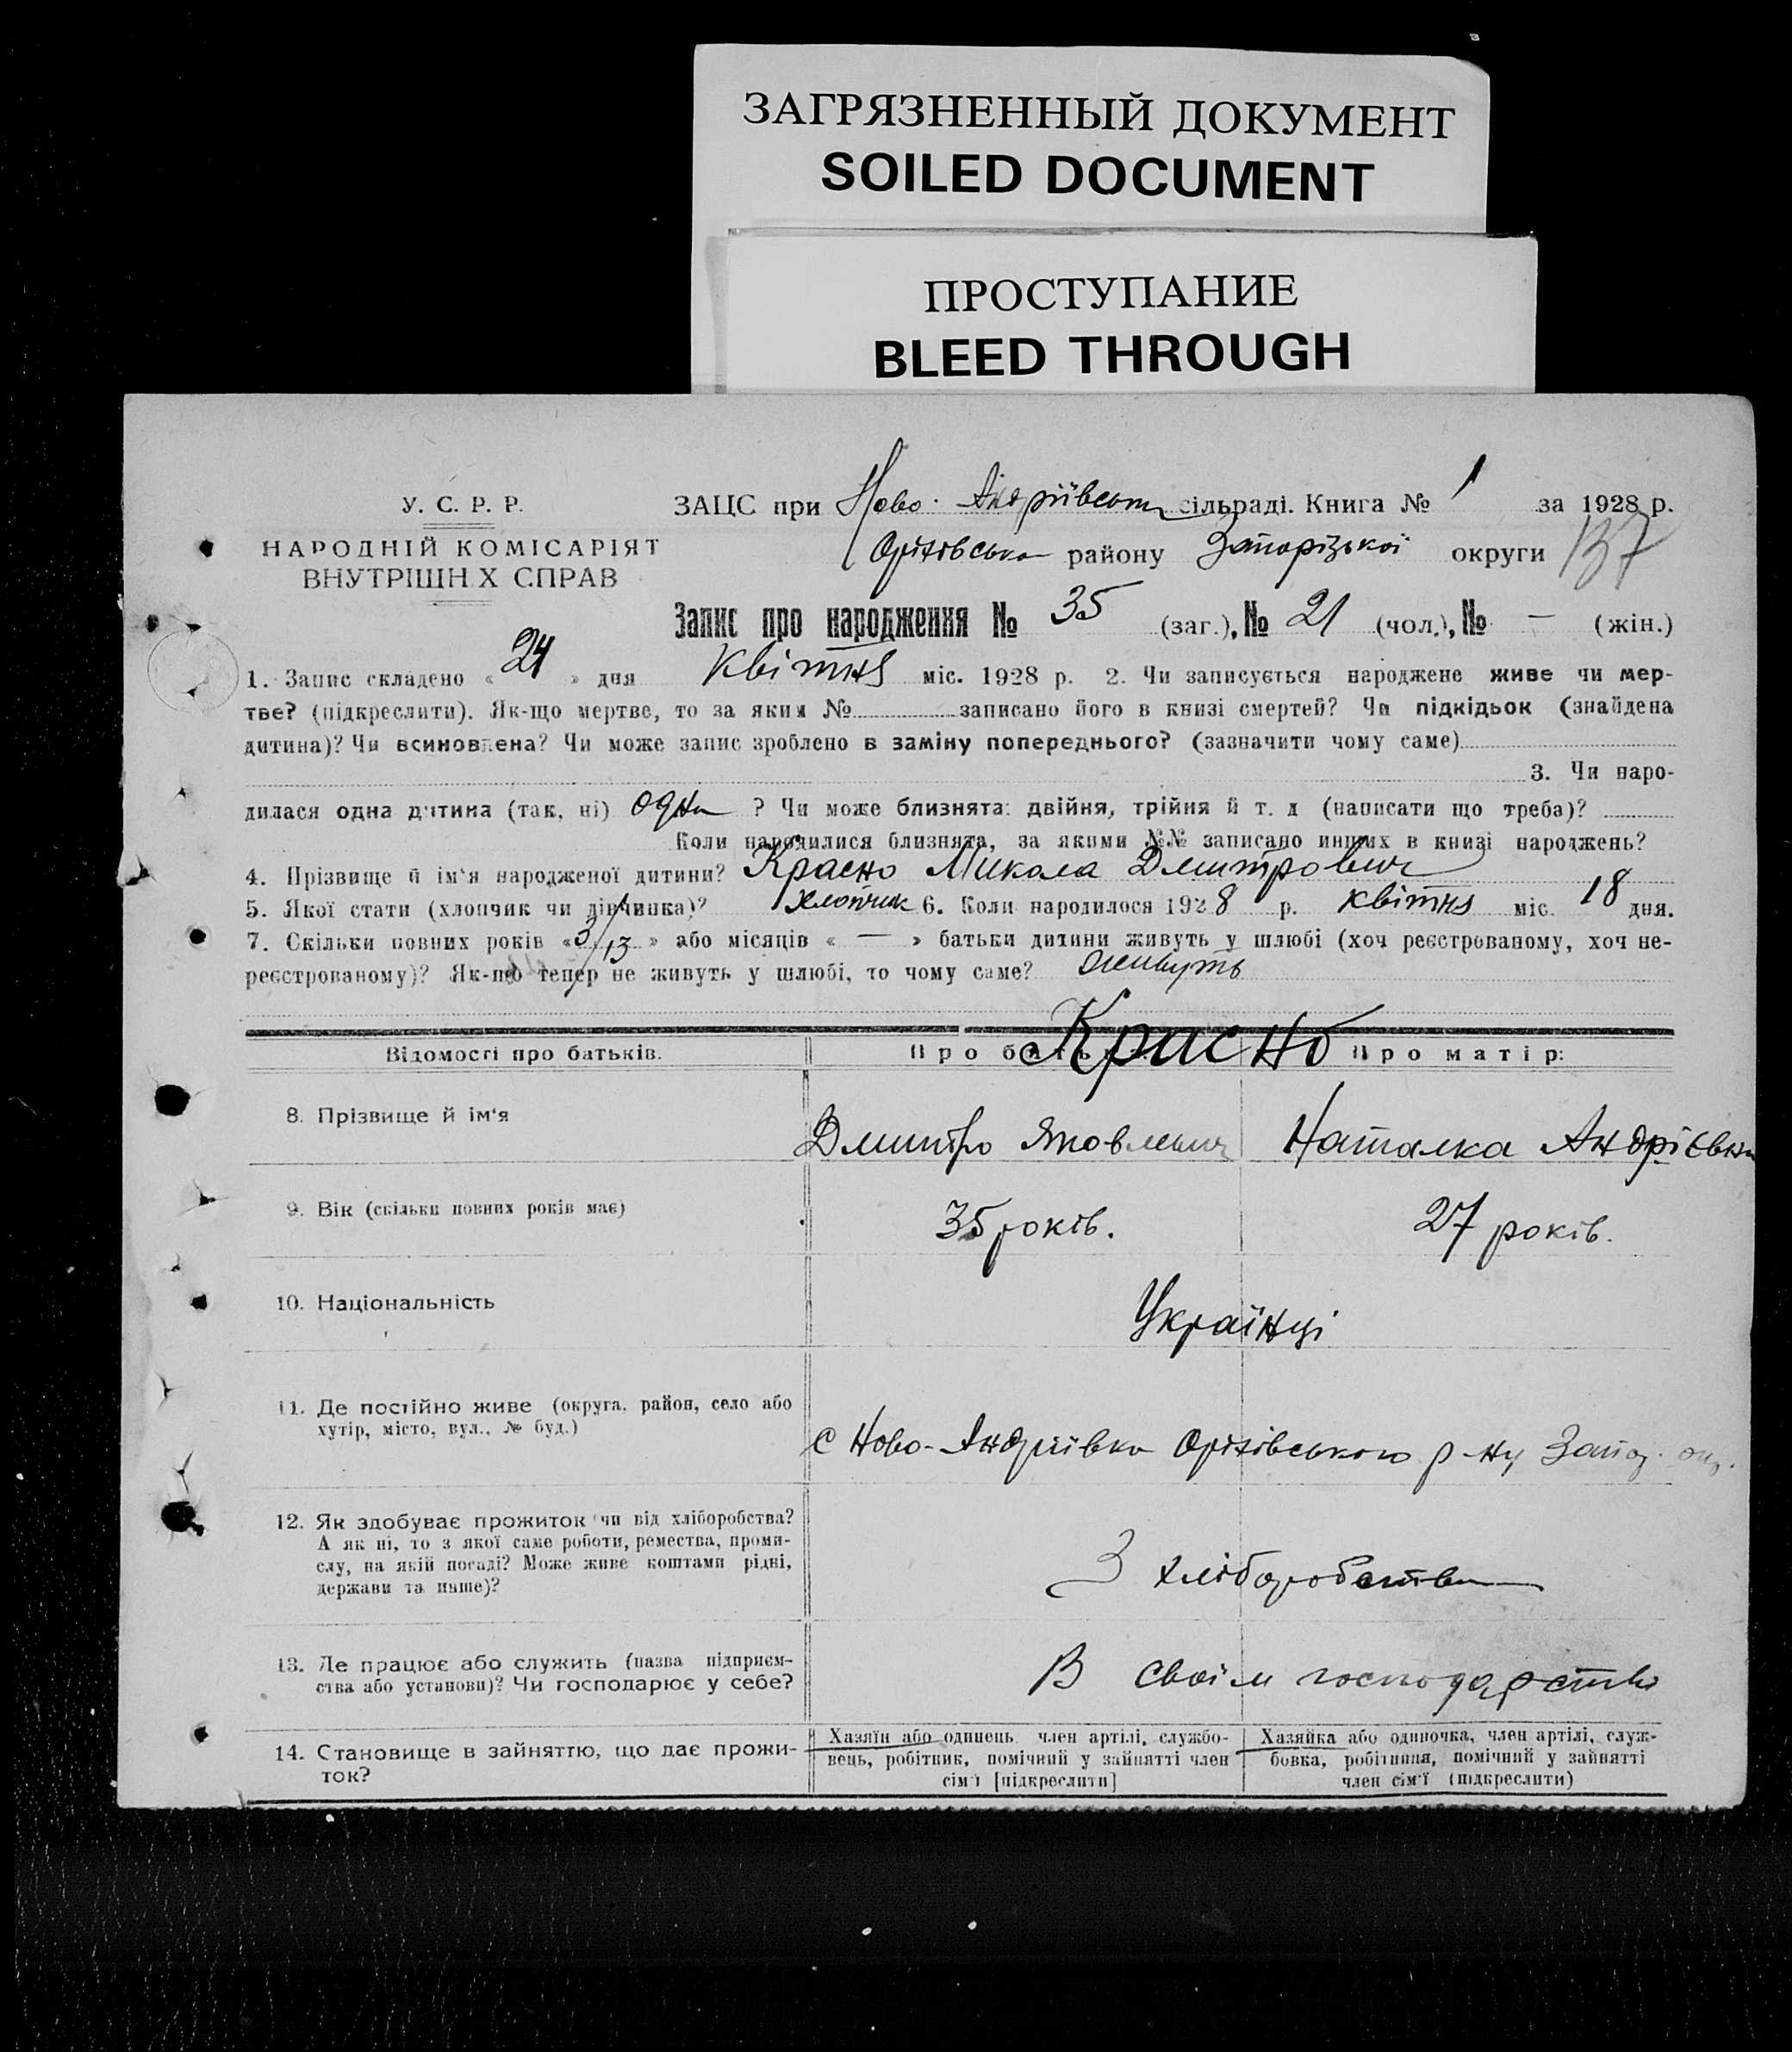 ЗАГРЯЗНЕННЫЙ ДОКУМЕНТ
SOILED DOCUMENT
ПРОСТУПАНИЕ
BLEED THROUGH
У. С. Р. Р.
НАРОДНІЙ КОМІСАРІЯТ
ВНУТРІШН Х СПРАВ
ЗАЦС при Ново-Андріївськ сільраді. Книга № 1 за 1928 р.
Оріхівська району Запорізької округи 137
Запис про народження № 35 (заг.), № 21 (чол.), № — (жін.)
1. Запис складено « 24 » дня квітня міс. 1928 р. 2. Чи записується народжене живе чи мер-
тве? (підкреслити). Як-що мертве, то за яким № записано його в книзі смертей? Чи підкідьок (знайдена
дитина)? Чи всиновлена? Чи може запис зроблено в заміну попереднього? (зазначити чому саме)
3. Чи наро-
дилася одна дитина (так, ні) одна ? Чи може близнята: двійня, трійня й т. д (написати що треба)?
Коли народилися близнята, за якими №№ записано инших в книзі народжень?
4. Прізвище й ім'я народженої дитини? Красно Микола Дмитрович
5. Якої стати (хлопчик чи дівчинка)? хлопчик 6. Коли народилося 1928 р. квітня міс. 18 дня.
7. Скільки повних років « 3/13 » або місяців « — » батьки дитини живуть у шлюбі (хоч реєстрованому, хоч не-
реєстрованому)? Як-що тепер не живуть у шлюбі, то чому саме? живуть
Красно
Відомості про батьків. Про батька: Про матір:
8. Прізвище й ім'я Дмитро Яковлевич Наталка Андрієвна
9. Вік (скільки повних років має) 35 років. 27 років.
10. Національність Українці
11. Де постійно живе (округа, район, село або
хутір, місто, вул., № буд.)
с Ново-Андріївка Оріхівського р-ну Запор. окр.
12. Як здобуває прожиток чи від хліборобства?
А як ні, то з якої саме роботи, ремества, проми-
слу, на якій посаді? Може живе коштами рідні,
держави та инше)?
З хліборобства
13. Де працює або служить (назва підприєм-
ства або установи)? Чи господарює у себе?
В своїм господарстві
14. Становище в зайняттю, що дає прожи-
ток?
Хазяїн або одинець, член артілі, службо-
вець, робітник, помічний у зайнятті член
сім'ї [підкреслити]
Хазяйка або одиночка, член артілі, служ-
бовка, робітниця, помічний у зайнятті
член сім'ї (підкреслити)